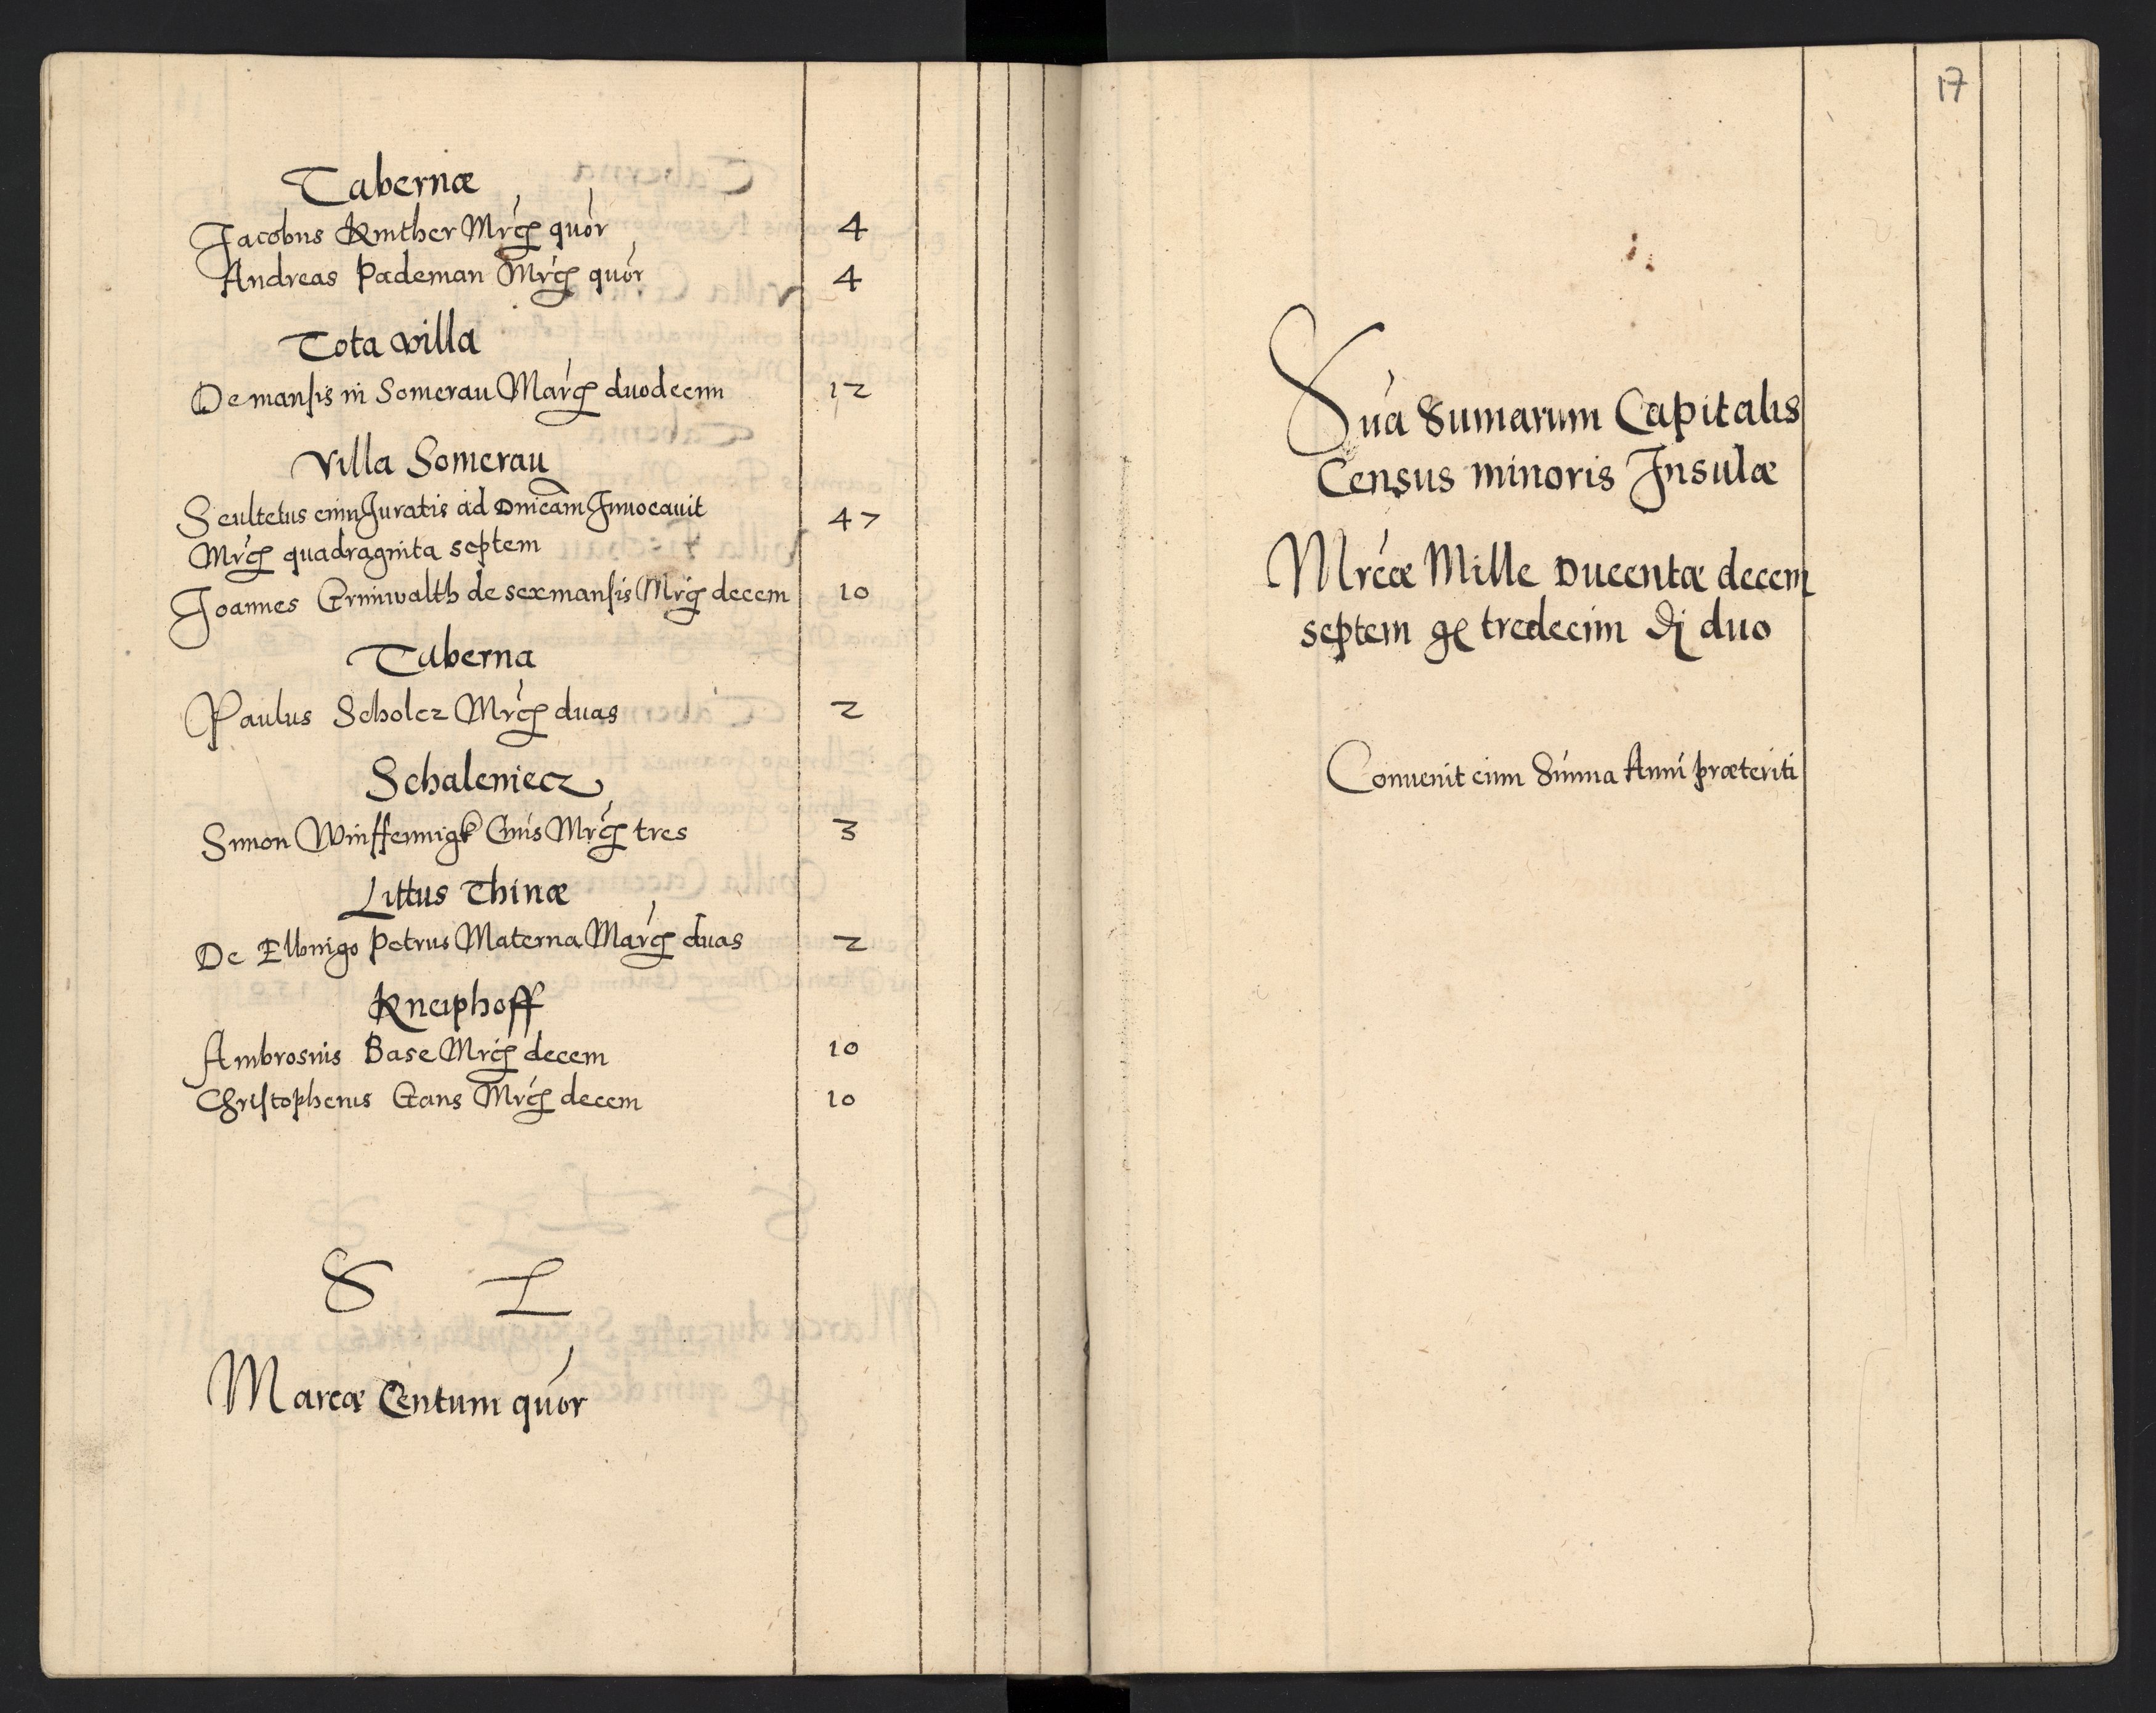 Tabernæ
Jacobus Kinther Mrcs quor 4
Andreas Pademan Mrcs quor 4
Tota villa
De mansis in Somerau Marcs duodecim 12
Villa Somerau
Scultetus cum Juratis ad Dnicam Inuocauit 47
Mrcs quadraginta septem
Joannes Grunwalth de sex mansis Mrcs decem 10
Taberna
Paulus Scholcz Mrcs duas 2
Schaleniecz
Simon Gnis Mrcs tres 3
Littus Thinæ
De Elbingo Petrus Materna Marcs duas 2
Kneiphoff
Ambrosius Base Mrcs decem 10
Christopherus Gans Mrcs decem 10
S L
Marcæ Centum quor
17
Sua Sumarum Capitalis
Census minoris Insulæ
Mrcæ Mille Ducentæ decem
septem gs tredecim dj duo
Conuenit cum Suma Anni præteriti